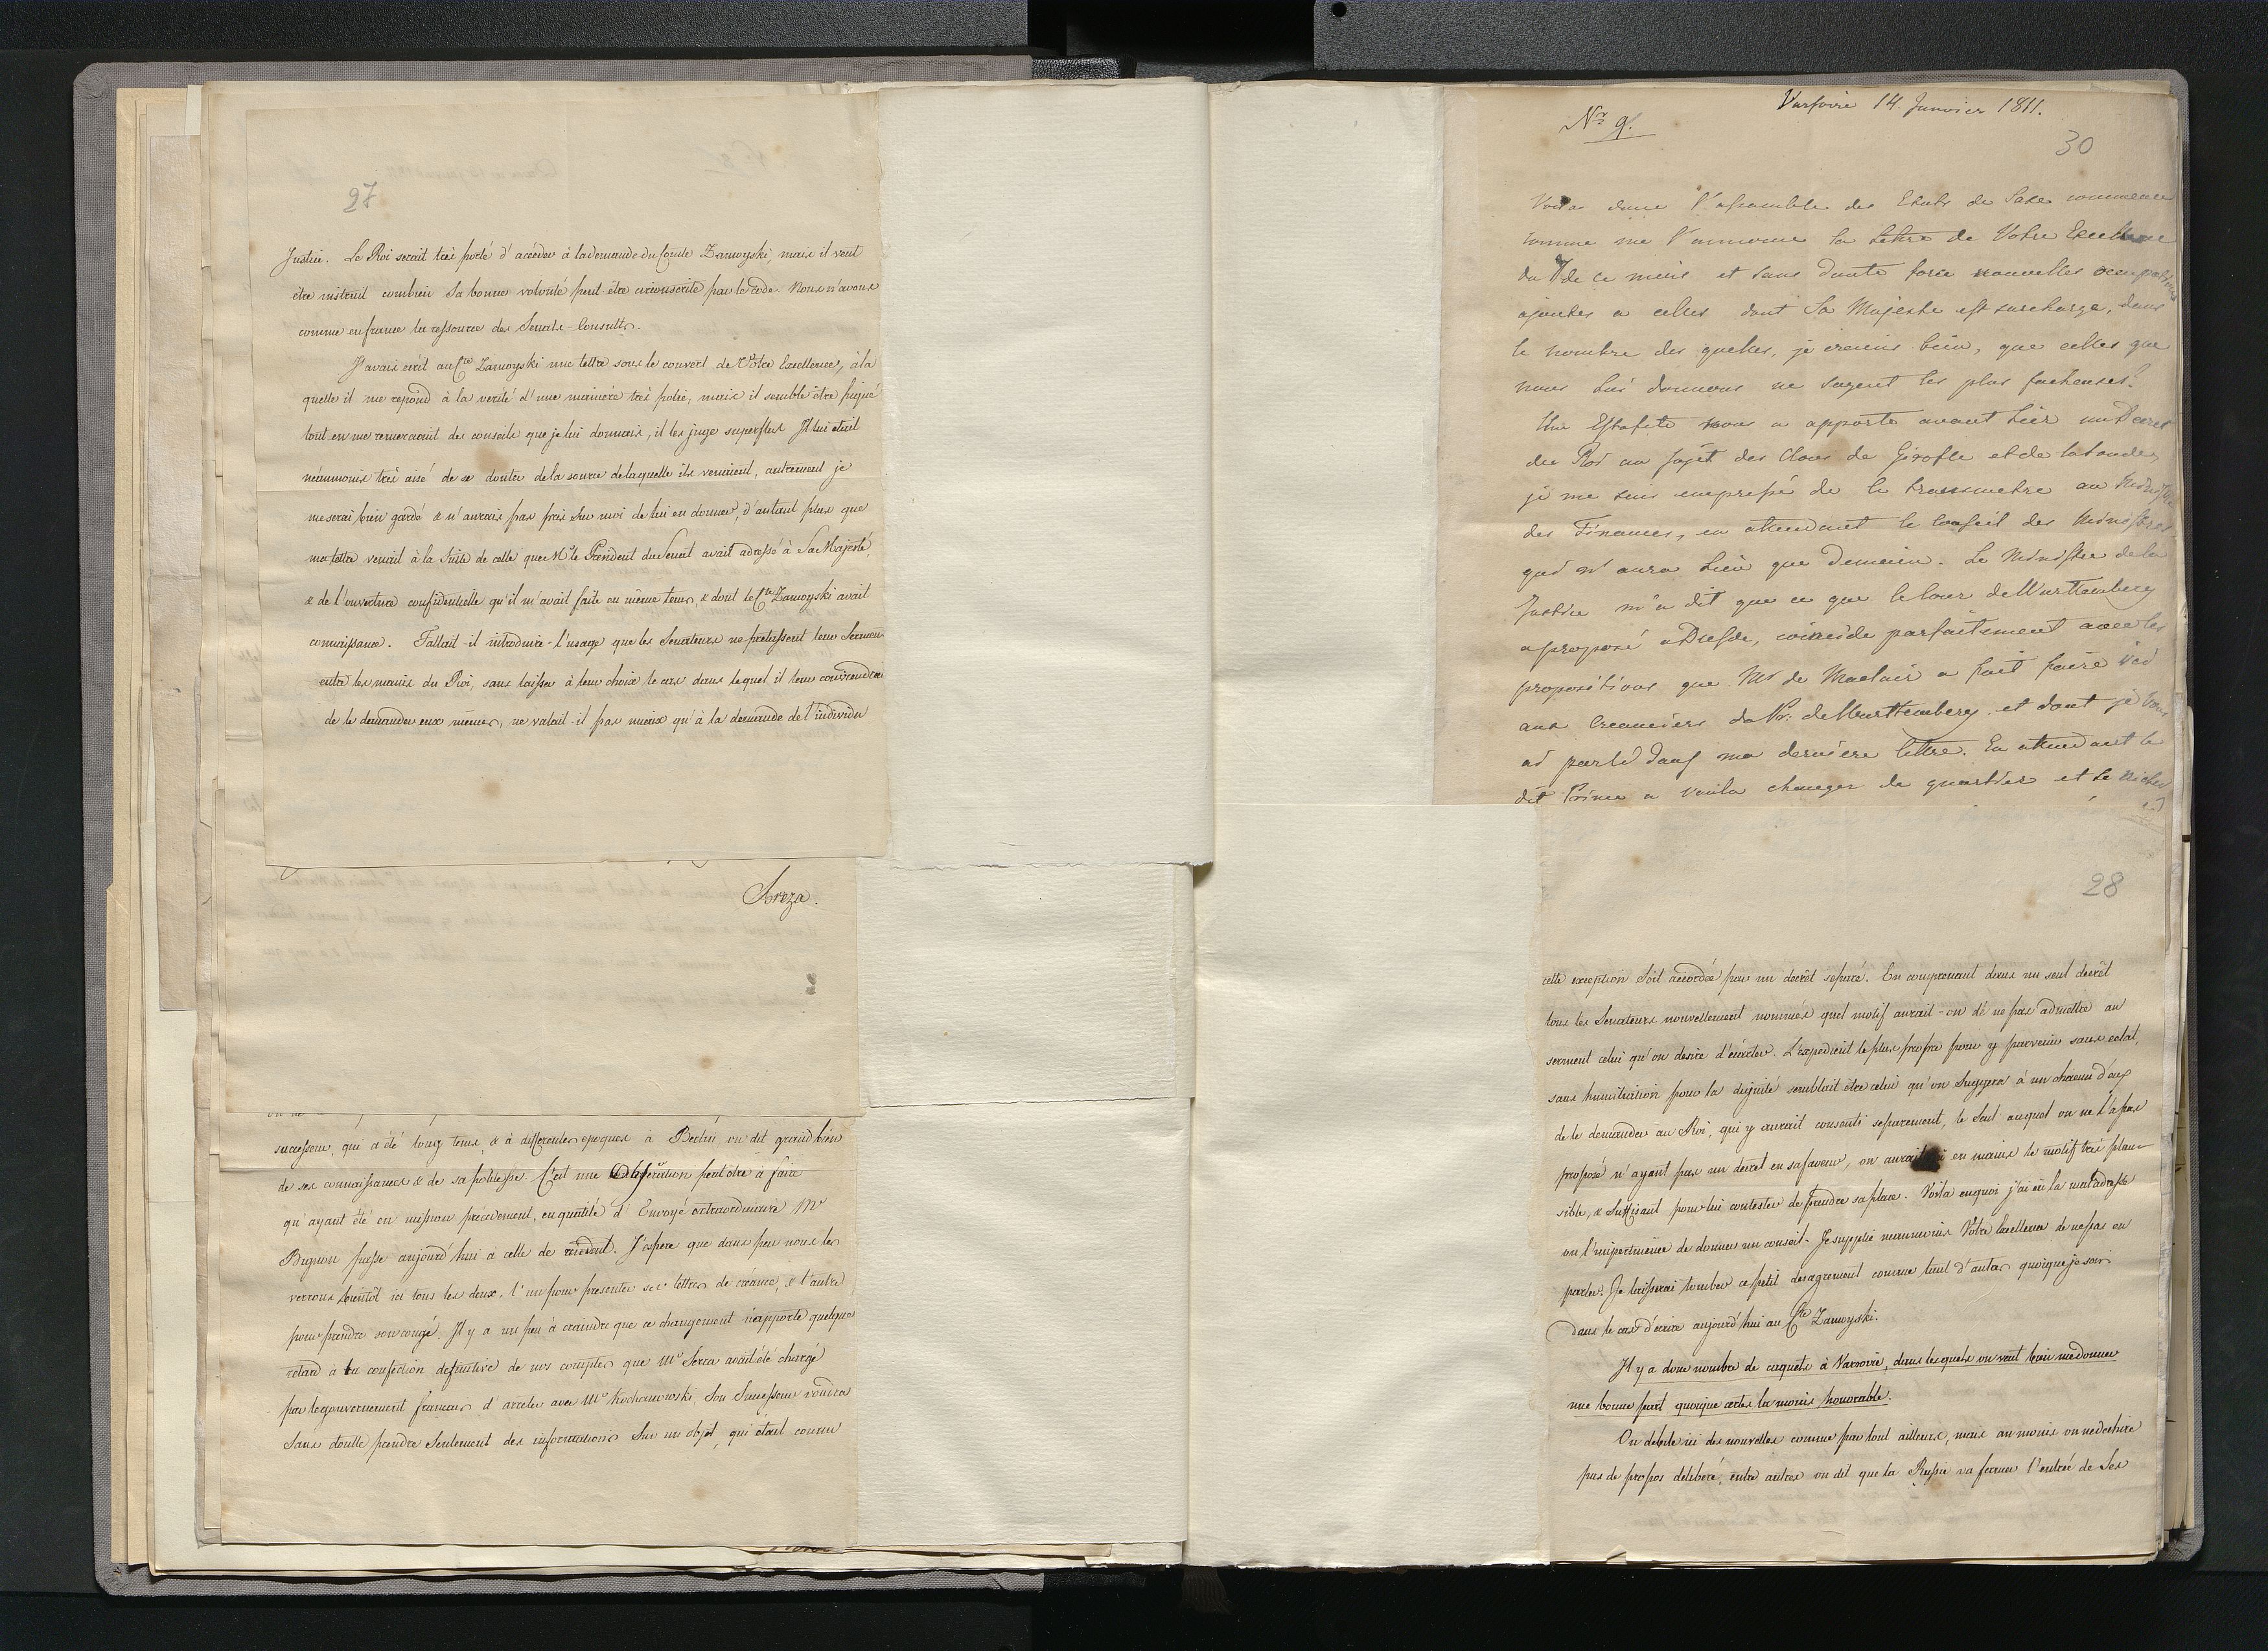 27
Justice. Le Roi serait très porté d'accéder à la demande du Comte Zamoyski, mais il veut
être instruit combien Sa bonne volonté peut être circonscrite par le Code. Nous n'avons
comme en france la ressource des Senats-Consultes.
J'avais écrit au Cte Zamoyski une lettre sous le couvert de Votre Excellence, à la
quelle il me repond à la verité d'une manière très polie, mais il semble être piqué
tout en me remerciant des conseils que je lui donnais, il les juge superflus Il lui était
néanmoins très aisé de se douter de la source de laquelle ils venaient, autrement je
me serai bien gardé & n'aurais pas pris sur moi de lui en donner, d'autant plus que
ma lettre venait à la Suite de celle que Mr le President du Senat avait adressé à Sa Majesté,
& de l'ouverture confidentielle qu'il m'avait faite en même tems, & dont le Cte Zamoyski avait
connaissance. Fallait-il introduire l'usage que les Senateurs ne pretassent leur Serment
entre les mains du Roi, sans laisser à leur choix le cas dans lequel il leur conviendra
de le demander eux mêmes, ne valait-il pas mieux qu'à la demande de l'individu
Breza.
successeur, qui a été long tems, & à differentes epoques à Berlin on dit grand bien
de ses connaissances & de sa politesse. C'est une Observation peut être à faire
qu'ayant été en mission précedement, en qualité d'Envoyé extraordinaire Mr
Bignon passe aujourd'hui à celle de resident. J'espere que dans peu nous les
verrons bientôt ici tous les deux, l'un pour presenter ses lettres de créance, & l'autre
pour prendre son congé. Il y a un peu à craindre que ce changement n'apporte quelque
retard à la confection definitive de nos comptes que Mr Serra avait été chargé
par le gouvernement francais d'arreter avec Mr Kochanowski, Son Successeur voudra
Sans doutte prendre Seulement des informations Sur un objet, qui etait connu
Nr 9.
Varsovie 14. Janvier 1811.
30
Voila donc l'assemblée des Etats de Saxe commencée
comme me l'annonce la lettre de Votre Excellence
du 7 de ce mois et sans doute force nouvelles occupations
ajoutes a celles dont Sa Majeste est surcharge, dans
le nombre des quelles, je crains bien, que celles que
nous lui donnons ne soyent les plus facheuses.
Une Estafete nous a apporte avant hier un Decret
du Roi au sujet des Clous de Girofle et de la soude,
je me suis empressé de le transmetre au Ministre
des Finances, en attendant le Conseil des Ministres,
qui n'aura lieu que demain. Le Ministre de la
Justice m'a dit que ce que le Louis de Wurttemberg
a proposé a Dresde, coincide parfaitement avec les
propositions que Mr de Maclair a fait faire ici
aux Creanciers du Pr: de Wurttemberg et dont je vous
ai parlé dans ma derniere lettre. En attendant le
dit Prince a voulu changer de quartier et se nicher
28
cette exception Soit accordée par un decrêt separé. En comprenant dans un seul decrêt
tous les Senateurs nouvellement nommés quel motif aurait-on de ne pas admettre au
serment celui qu'on desire d'écarter. L'expedient le plus propre pour y parvenir sans eclat,
sans humiliation pour la dignité semblait être celui qu'on Suggera à un chacun d'eux
de le demander au Roi, qui y aurait consenti separement, le Seul auquel on ne l'a pas
proposé n'ayant pas un decret en sa faveur, on aurait eu en mains le motif très plau-
sible, & Suffisant pour lui contester de prendre sa place. Voila en quoi j'ai eu la maladresse
ou l'impertinence de donner un conseil. Je supplie neanmoins Votre Excellence de ne pas en
parler. Je laisserai tomber ce petit desagrement comme tant d'autres quoique je sois
dans le cas d'écrire aujourd'hui au Cte Zamoyski.
Il y a donc nombre de caquets à Varsovie, dans lesquels on veut bien me donner
une bonne part quoique certes la moins honorable.
On debite ici des nouvelles comme par tout ailleurs, mais au moins on ne dechire
pas de propos deliberé, entre autres on dit que la Russie va fermer l'entrée de Ses